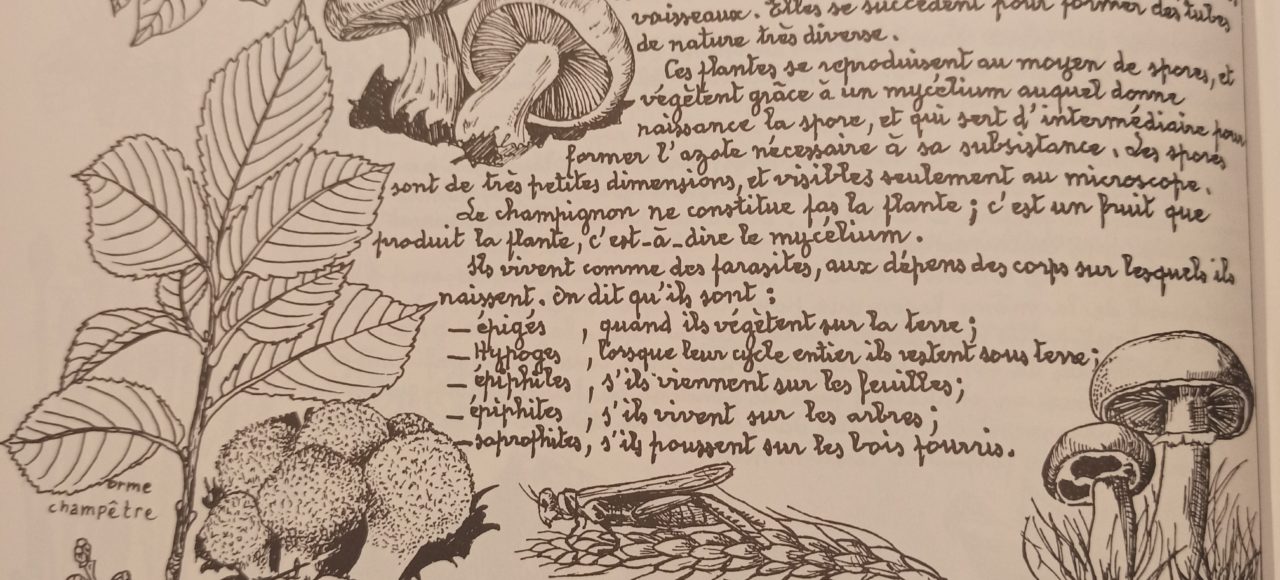 vaisseaux. Elles se succèdent pour former des tubes
de nature très diverse.
Ces plantes se reproduisent au moyen de spores, et
végètent grâce à un mycélium auquel donne
naissance la spore, et qui sert d'intermédiaire pour
former l'azote nécessaire à sa subsistance. Les spores
sont de très petites dimensions, et visibles seulement au microscope.
Le champignon ne constitue pas la plante ; c'est un fruit que
produit la plante, c'est-à-dire le mycélium.
Ils vivent comme des parasites, aux dépens des corps sur lesquels ils
naissent. On dit qu'ils sont :
– épigés , quand ils végètent sur la terre ;
– Hypoges , lorsque leur cycle entier ils restent sous terre ;
– épiphiles , s'ils viennent sur les feuilles ;
– épiphites , s'ils vivent sur les arbres ;
– saprophites, s'ils poussent sur les bois pourris.
orme
champêtre